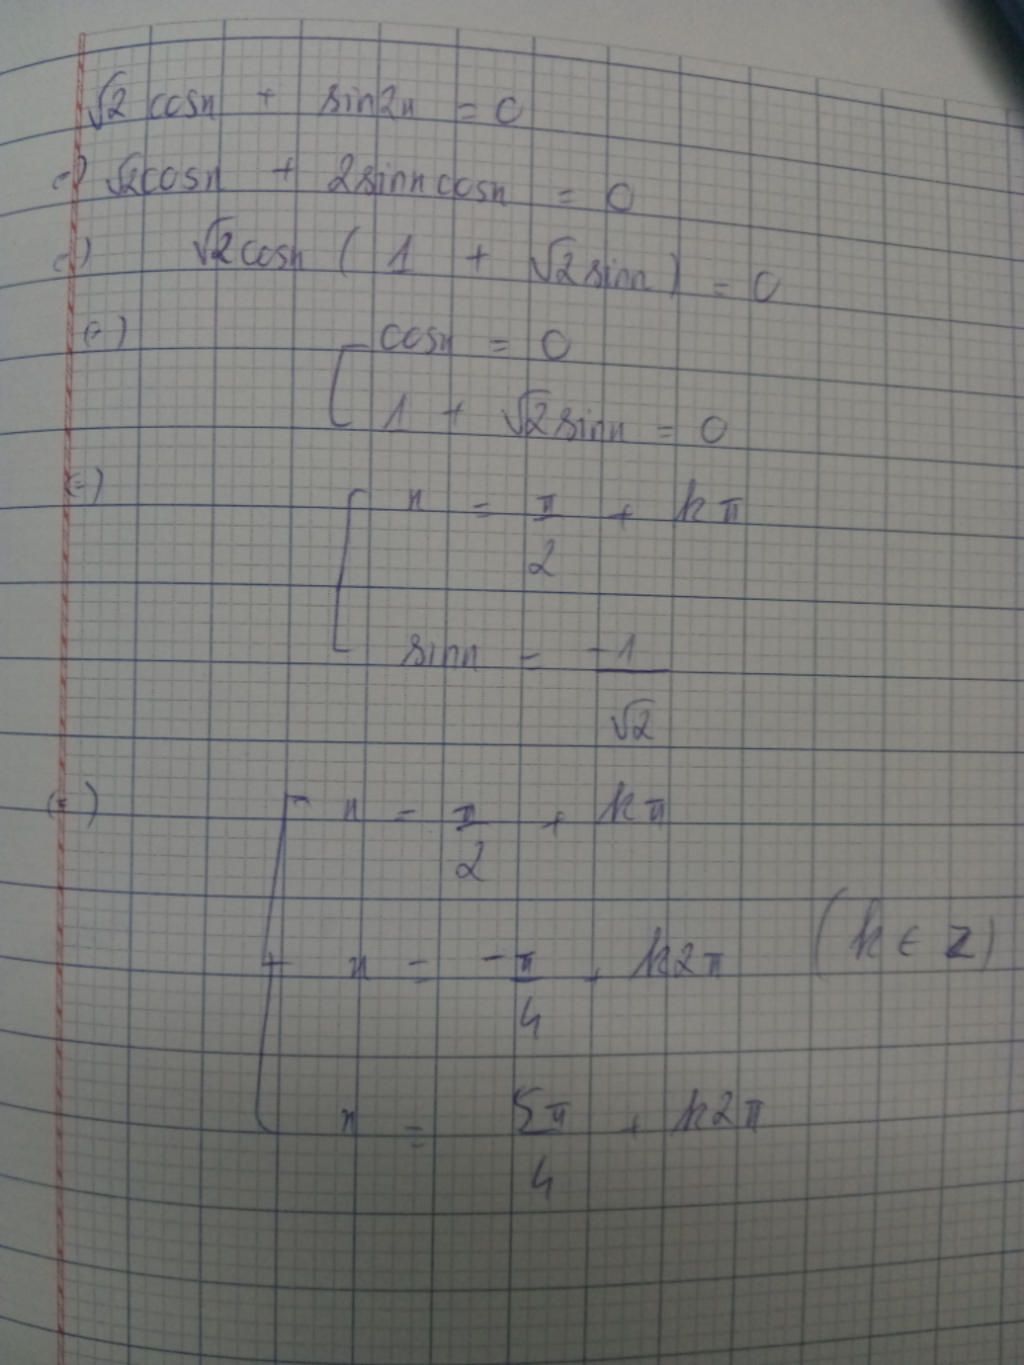 √2 cosx + sin2x = 0
(=) √2cosx + 2sinxcosx = 0
(=) √2cosx ( 1 + √2sinx) = 0
(=) [ cosx = 0
1 + √2sinx = 0
(=) [ x = π/2 + kπ
sinx = -1/√2
(=) [ x = π/2 + kπ
x = -π/4 + k2π (k ∈ Z)
x = 5π/4 + k2π